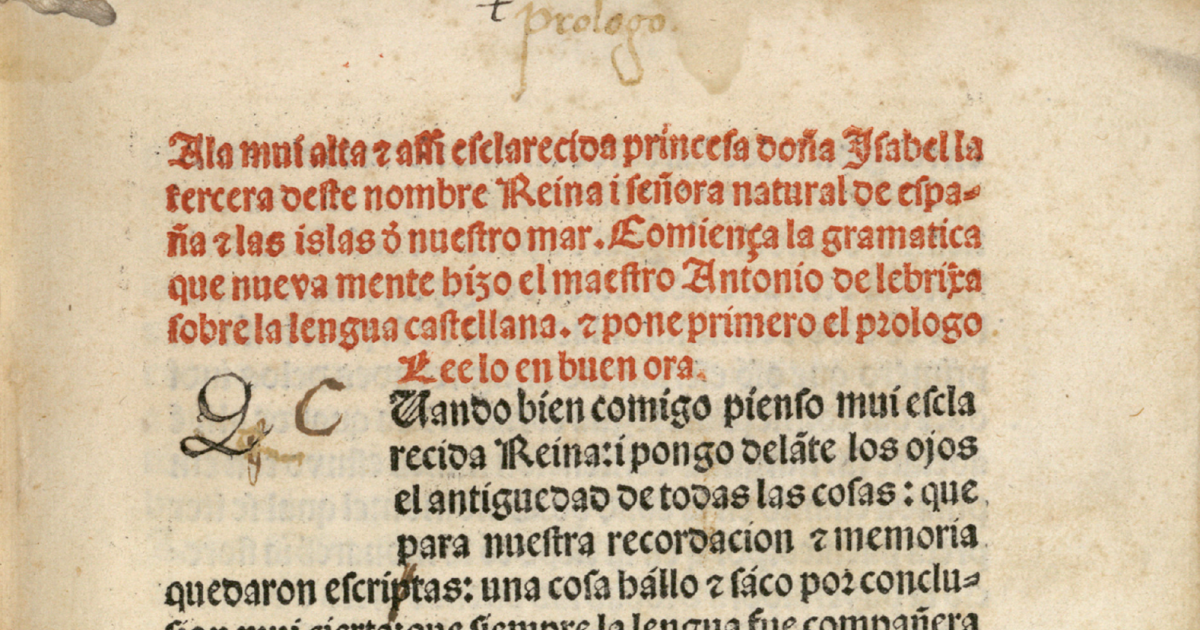 + prologo.
Ala mui alta ⁊ aſſi eſclarecida princeſa doña Iſabel la
tercera deſte nombre Reina i ſeñora natural de eſpa-
ña ⁊ las islas ð nueſtro mar. Comiença la gramatica
que nueva mente hizo el maeſtro Antonio de lebrixa
ſobre la lengua caſtellana. ⁊ pone primero el prologo
Lee lo en buen ora.
Q C Uando bien comigo pienſo mui eſcla
recida Reina: i pongo delãte los ojos
el antiguedad de todas las coſas: que
para nueſtra recordacion ⁊ memoria
quedaron eſcriptas: una coſa hállo ⁊ ſáco por conclu-
ſion mui cierta: que ſiempre la lengua fue compañera